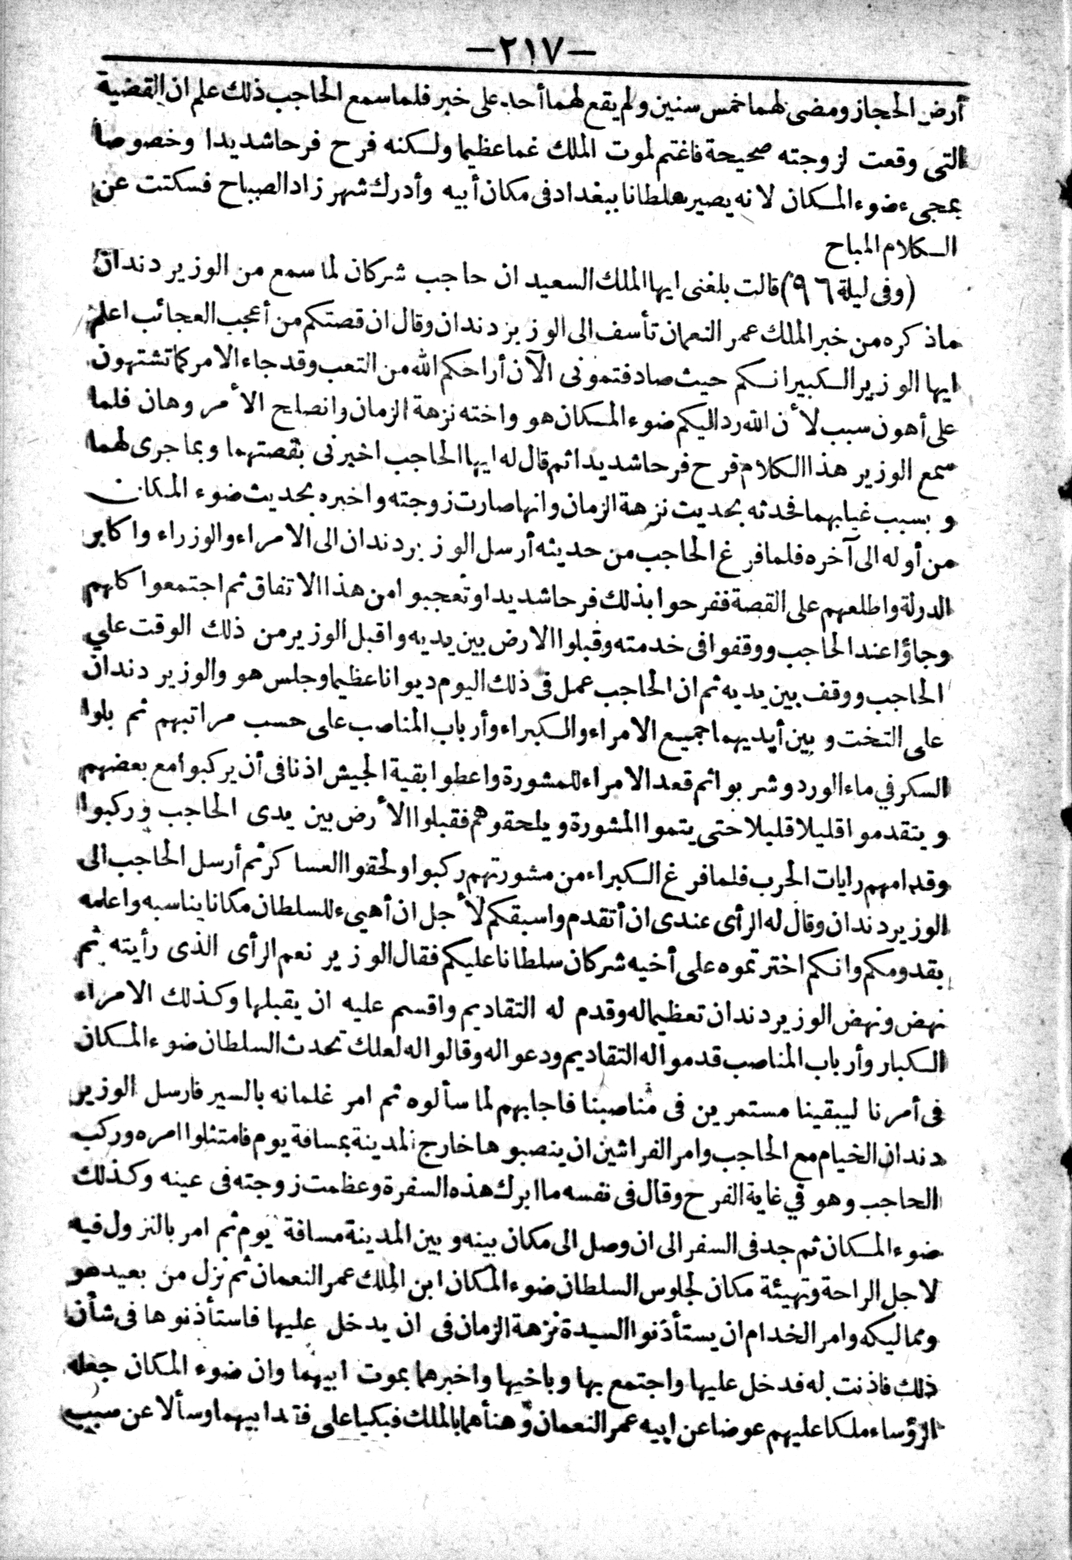 -٢١٧-
أرض الحجاز ومضى لهما خمس سنين ولم يقع لهما أحد على خبر فلما سمع الحاجب ذلك علم ان القضية
التى وقعت لزوجته صحيحة فاغتم لموت الملك غما عظيما ولكنه فرح فرحا شديدا وخصوصا
بمجىء ضوء المكان لانه يصير سلطانا ببغداد فى مكان أبيه وأدرك شهر زاد الصباح فسكتت عن
الكلام المباح
(وفى ليلة ٩٦) قالت بلغنى ايها الملك السعيد ان حاجب شركان لما سمع من الوزير دندان
ماذكره من خبر الملك عمر النعمان تأسف الى الوزير دندان وقال ان قصتكم من أعجب العجائب اعلم
ايها الوزير الكبير انكم حيث صادفتمونى الآن أراحكم الله من التعب وقد جاء الامر كما تشتهون
على أهون سبب لأن الله رد اليكم ضوء المكان هو واخته نزهة الزمان وانصلح الأمر وهان فلما
سمع الوزير هذا الكلام فرح فرحا شديدا ثم قال له ايها الحاجب اخبرنى بقصتهما وبما جرى لهما
وبسبب غيابهما فحدثه بحديث نزهة الزمان وانها صارت زوجته واخبره بحديث ضوء المكان
من أوله الى آخره فلما فرغ الحاجب من حديثه أرسل الوزير دندان الى الامراء والوزراء واكابر
الدولة واطلعهم على القصة ففرحوا بذلك فرحا شديدا وتعجبوا من هذا الاتفاق ثم اجتمعوا كلهم
وجاؤا عند الحاجب ووقفوا فى خدمته وقبلوا الارض بين يديه واقبل الوزير من ذلك الوقت على
الحاجب ووقف بين يديه ثم ان الحاجب عمل فى ذلك اليوم ديوانا عظيما وجلس هو والوزير دندان
على التخت وبين أيديهما جميع الامراء والكبراء وأرباب المناصب على حسب مراتبهم ثم بلوا
السكر في ماء الورد وشربوا ثم قعد الامراء للمشورة واعطوا بقية الجيش اذنا فى أن يركبوا مع بعضهم
ويتقدموا قليلا قليلا حتى يتموا المشورة ويلحقوهم فقبلوا الأرض بين يدى الحاجب وركبوا
وقدامهم رايات الحرب فلما فرغ الكبراء من مشورتهم ركبوا ولحقوا العساكر ثم أرسل الحاجب الى
الوزير دندان وقال له الرأى عندى ان أتقدم واسبقكم لأجل ان أهيىء للسلطان مكانا يناسبه واعلمه
بقدومكم وانكم اخترتموه على أخيه شركان سلطانا عليكم فقال الوزير نعم الرأى الذى رأيته ثم
نهض ونهض الوزير دندان تعظيما له وقدم له التقاديم واقسم عليه ان يقبلها وكذلك الامراء
الكبار وأرباب المناصب قدموا له التقاديم ودعوا له وقالوا له لعلك تحدث السلطان ضوء المكان
فى أمرنا ليبقينا مستمرين فى مناصبنا فاجابهم لما سألوه ثم امر غلمانه بالسير فارسل الوزير
دندان الخيام مع الحاجب وامر الفراشين ان ينصبوها خارج المدينة بمسافة يوم فامتثلوا امره وركب
الحاجب وهو في غاية الفرح وقال فى نفسه ما ابرك هذه السفرة وعظمت زوجته فى عينه وكذلك
ضوء المكان ثم جد فى السفر الى ان وصل الى مكان بينه وبين المدينة مسافة يوم ثم امر بالنزول فيه
لاجل الراحة وتهيئة مكان لجلوس السلطان ضوء المكان ابن الملك عمر النعمان ثم نزل من بعيد هو
ومماليكه وامر الخدام ان يستأذنوا السيدة نزهة الزمان فى ان يدخل عليها فاستأذنوها فى شأن
ذلك فاذنت له فدخل عليها واجتمع بها وباخيها واخبرهما بموت ابيهما وان ضوء المكان جعله
الرؤساء ملكا عليهم عوضا عن ابيه عمر النعمان وهنأهما بالملك فبكيا على فقد ابيهما وسألا عن سبب